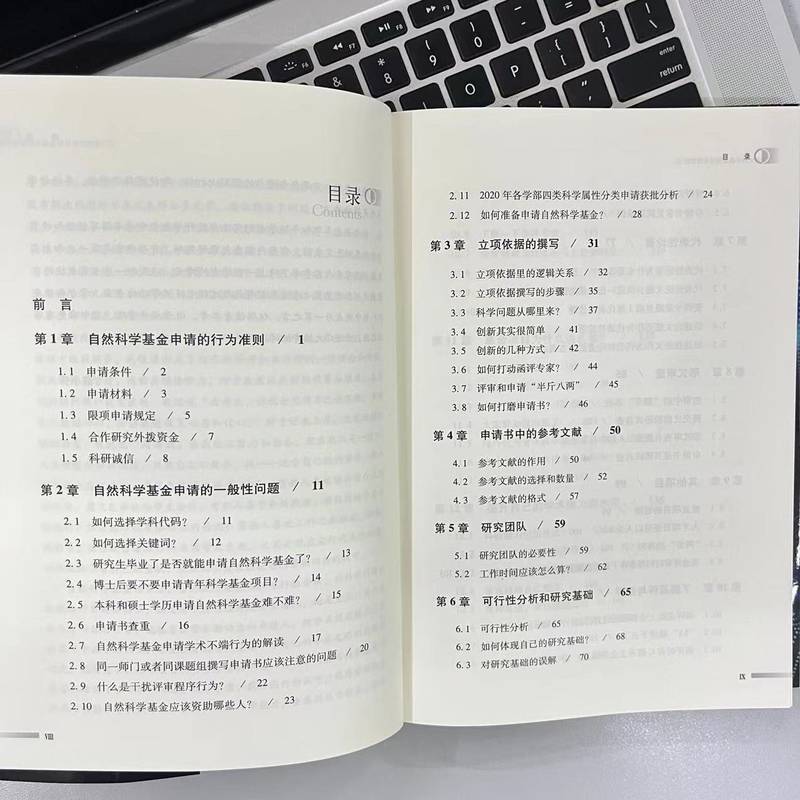 目录
Contents
前 言
第1章 自然科学基金申请的行为准则 / 1
1.1 申请条件 / 2
1.2 申请材料 / 3
1.3 限项申请规定 / 5
1.4 合作研究外拨资金 / 7
1.5 科研诚信 / 8
第2章 自然科学基金申请的一般性问题 / 11
2.1 如何选择学科代码? / 11
2.2 如何选择关键词? / 12
2.3 研究生毕业了是否就能申请自然科学基金了? / 13
2.4 博士后要不要申请青年科学基金项目? / 14
2.5 本科和硕士学历申请自然科学基金难不难? / 15
2.6 申请书查重 / 16
2.7 自然科学基金申请学术不端行为的解读 / 17
2.8 同一师门或者同课题组撰写申请书应该注意的问题 / 20
2.9 什么是干扰评审程序行为? / 22
2.10 自然科学基金应该资助哪些人? / 23
VIII
目 录
2.11 2020年各学部四类科学属性分类申请获批分析 / 24
2.12 如何准备申请自然科学基金? / 28
第3章 立项依据的撰写 / 31
3.1 立项依据里的逻辑关系 / 32
3.2 立项依据撰写的步骤 / 35
3.3 科学问题从哪里来? / 37
3.4 创新其实很简单 / 41
3.5 创新的几种方式 / 42
3.6 如何打动函评专家? / 44
3.7 评审和申请“半斤八两” / 45
3.8 如何打磨申请书? / 46
第4章 申请书中的参考文献 / 50
4.1 参考文献的作用 / 50
4.2 参考文献的选择和数量 / 52
4.3 参考文献的格式 / 57
第5章 研究团队 / 59
5.1 研究团队的必要性 / 59
5.2 工作时间应该怎么算? / 62
第6章 可行性分析和研究基础 / 65
6.1 可行性分析 / 65
6.2 如何体现自己的研究基础? / 68
6.3 对研究基础的误解 / 70
IX
F5
F6
F7
F8
F9
F10
& 7
* 8
( 9
) 0
delete
enter
return